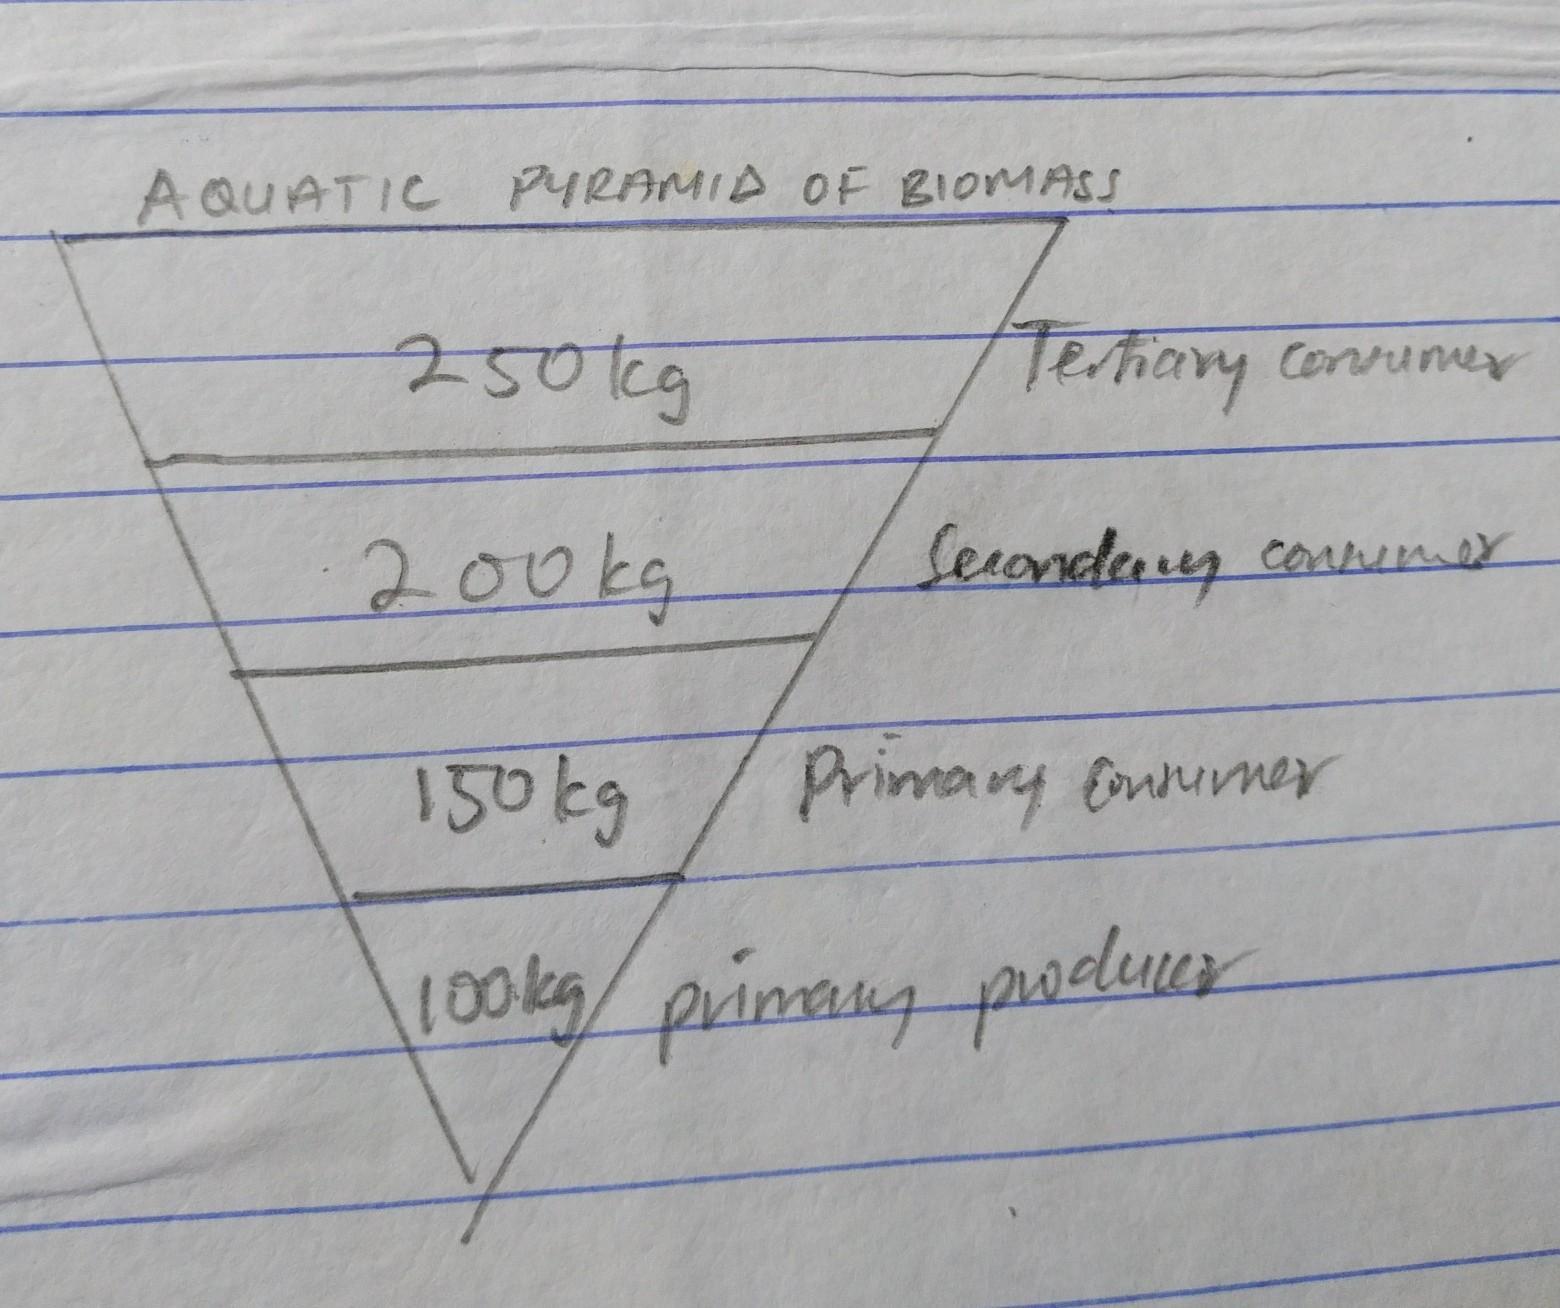 AQUATIC PYRAMID OF BIOMASS
250kg Tertiary consumer
200kg Secondary consumer
150kg Primary consumer
100kg primary producer